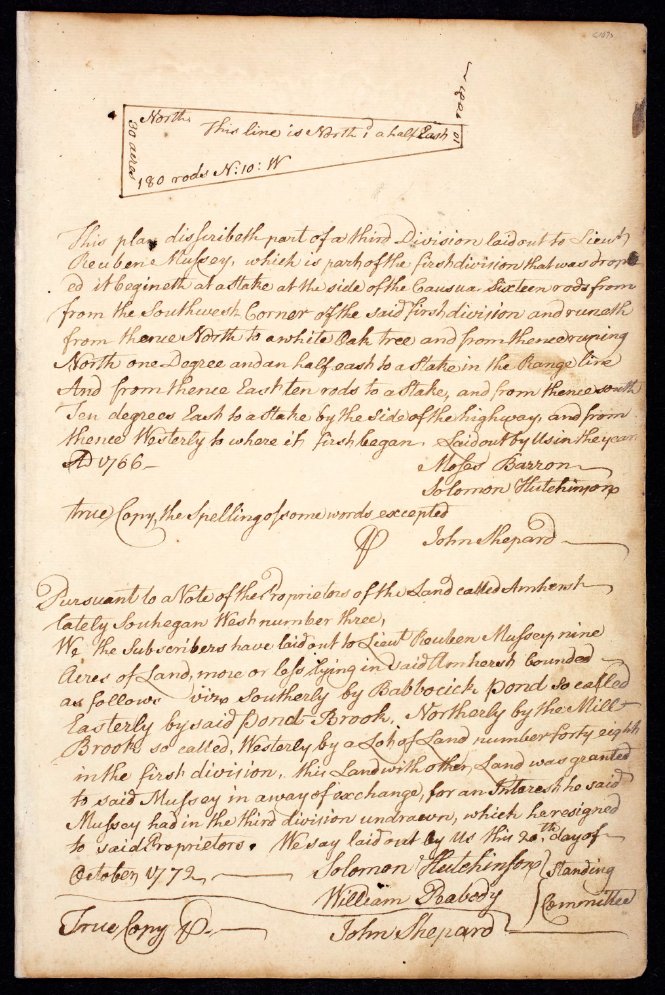 North
This line is North 1d a half East
10 rods
30 acres
180 rods N: 10: W
This plan disscribeth part of a third Division laid out to Lieut
Reuben Mussey, which is part of the first division that was drop
ed it begineth at a Stake at the side of the Causua Sixteen rods from
from the Southwest Corner of the said first division and runeth
from thence North to a white Oak tree and from thence runing
North one Degree and an half east to a Stake in the Range line
And from thence East ten rods to a Stake, and from thence south
Ten degrees East to a Stake by the Side of the highway, and from
thence Westerly to where it first began. Laid out by Us in the year
AD 1766
Moses Barron
Solomon Hutchinson
true Copy, the Spelling of some words excepted
John Shepard
Pursuant to a Vote of the Proprietors of the Land called Amherst
lately Souhegan West number three,
We the Subscribers have laid out to Lieut Reuben Mussey, nine
Acres of Land, more or less lying in said Amherst bounded
as follows viz Southerly by Babbocick Pond so called
Easterly by said Pond Brook, Northerly by the Mill
Brook so called, Westerly by a Lot of Land number forty eight
in the first division, this Land with other Land was granted
to said Mussey in a way of exchange, for an Interest he said
Mussey had in the third division undrawn, which he resigned
to said Proprietors. We say laid out by Us this 20th day of
October, 1772
Solomon Hutchinson
William Peabody
Standing
Committee
True Copy
John Shepard